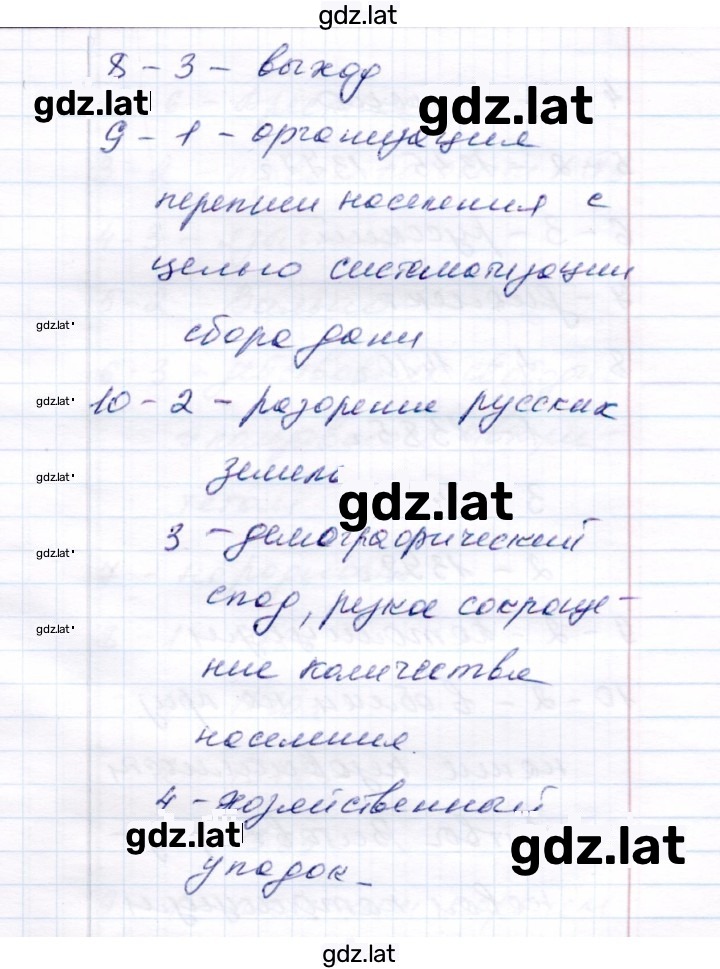 gdz.lat
8 - 3 - выход
gdz.lat
gdz.lat
9 - 1 - организация
переписи населения с
целью систематизации
gdz.lat
сбора дани
gdz.lat
10 - 2 - разорение русских
gdz.lat
земель
gdz.lat
3 - демографический
gdz.lat
спад, резкое сокраще-
gdz.lat
ние количества
населения.
4 - хозяйственный
gdz.lat
gdz.lat
упадок
gdz.lat